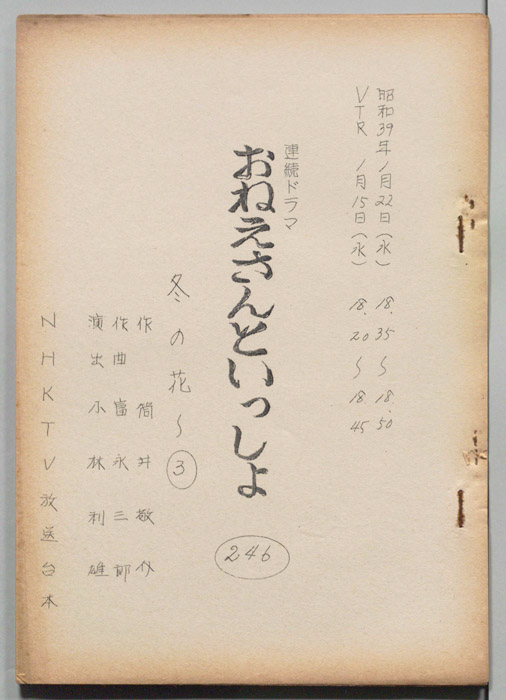 昭和39年1月22日(水) 18.35〜18.50
VTR 1月15日(水) 18.20〜18.45
連続ドラマ
おねえさんといっしょ
246
冬の花〜③
作 筒井敬介
作曲 富永三郎
演出 小林利雄
NHKTV放送台本